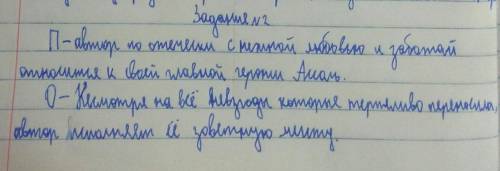 Задание №2
П-автор по отечески с нежной любовью и заботай
относится к своей главной героини Ассоль.
О-Несмотря на всё невзгоди которые терпеливо переносила,
автор исполняет её заветную мечту.